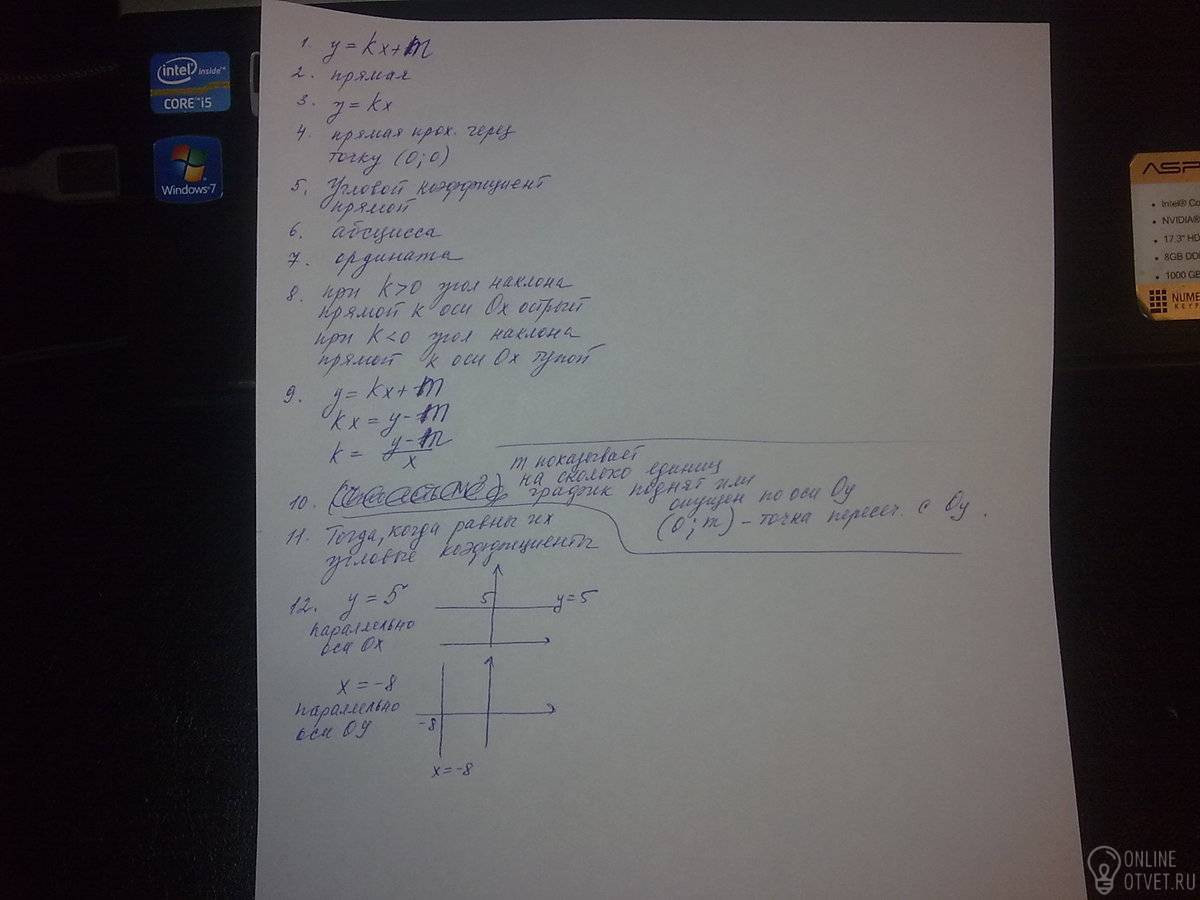 1. y = kx + m
2. прямая
3. y = kx
4. прямая прох. через
точку (0; 0)
5. Угловой коэффициент
прямой
6. абсцисса
7. ордината
8. при k > 0 угол наклона
прямой к оси Ox острый
при k < 0 угол наклона
прямой к оси Ox тупой
9. y = kx + m
kx = y - m
k = (y - m)/x
10. m показывает
на сколько единиц
график поднят или
опущен по оси Oy
(0; m) - точка пересеч. с Oy.
11. Тогда, когда равны их
угловые коэффициенты
12. y = 5
5
y = 5
параллельно
оси Ox
x = -8
параллельно
оси Oy
-8
x = -8
intel inside™
CORE™ i5
Windows® 7
ASP
Intel® Co
NVIDIA®
17.3" HD
8GB DD
1000 GB
NUME
KEYP
ONLINE
OTVET.RU